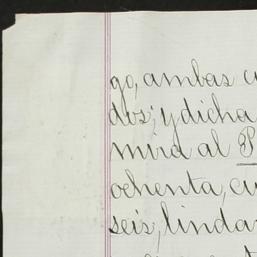 go, ambas
dos; y dicha
mira al
ochenta,
seis, linda